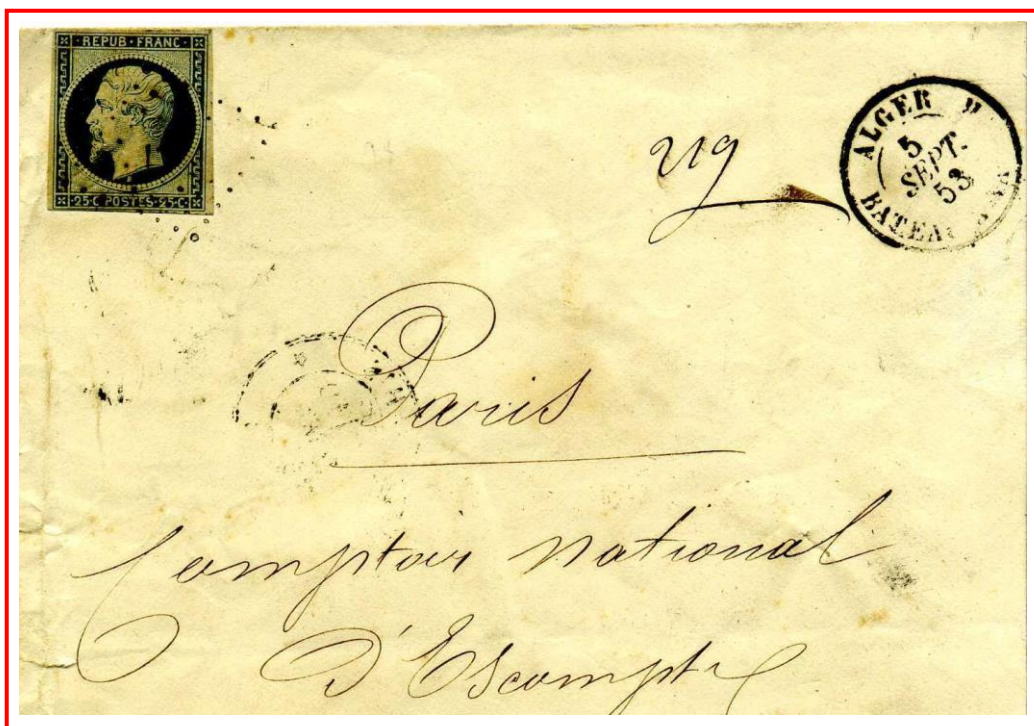 REPUB · FRANC ·
· 25 · C POSTES · 25 · C ·
219
ALGER
5
SEPT.
53
Paris
Comptoir National
D'Escompte